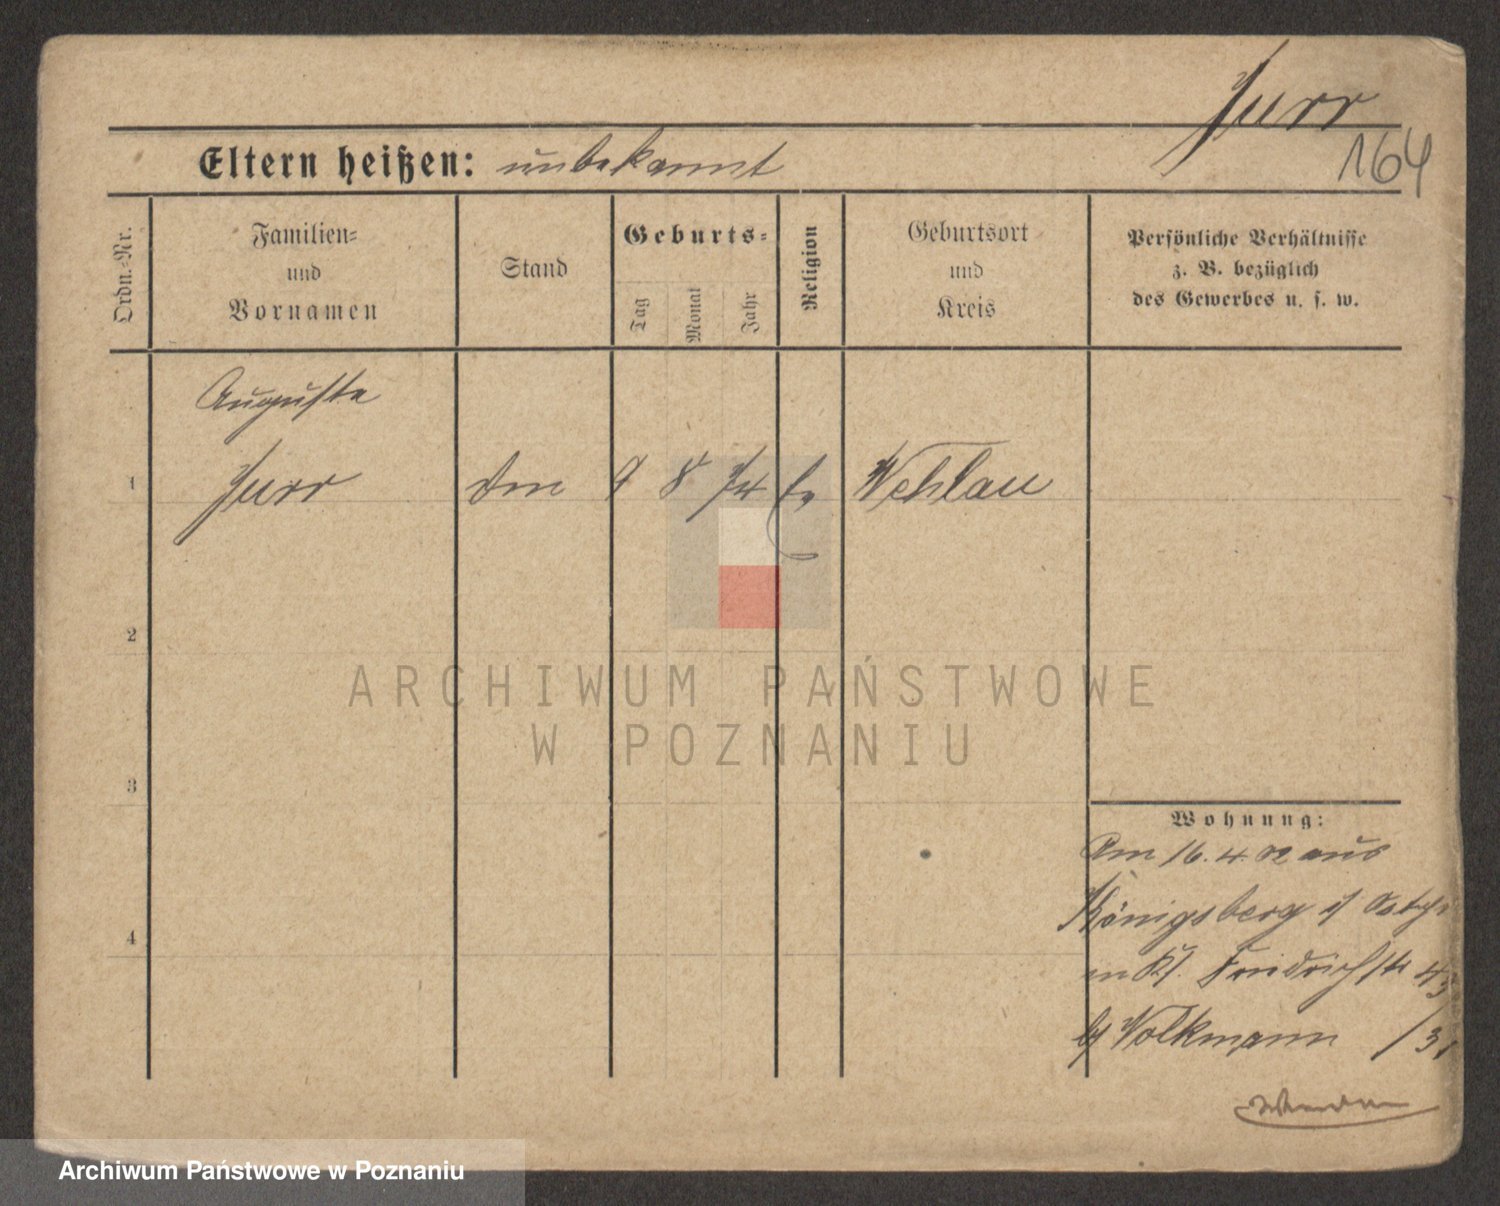 Jurr
164
Eltern heißen: unbekannt
Ordn.-Nr.
Familien-
und
Vornamen
Stand
Geburts-
Tag
Monat
Jahr
Religion
Geburtsort
und
Kreis
Persönliche Verhältnisse
z. B. bezüglich
des Gewerbes u. s. w.
Auguste
1 Jurr 9 8 74 Wehlau
2
3
4
ARCHIWUM PAŃSTWOWE
W POZNANIU
Wohnung:
Am 16. 4. 02 aus
Königsberg
Friedrichstr
Volkmann
Archiwum Państwowe w Poznaniu